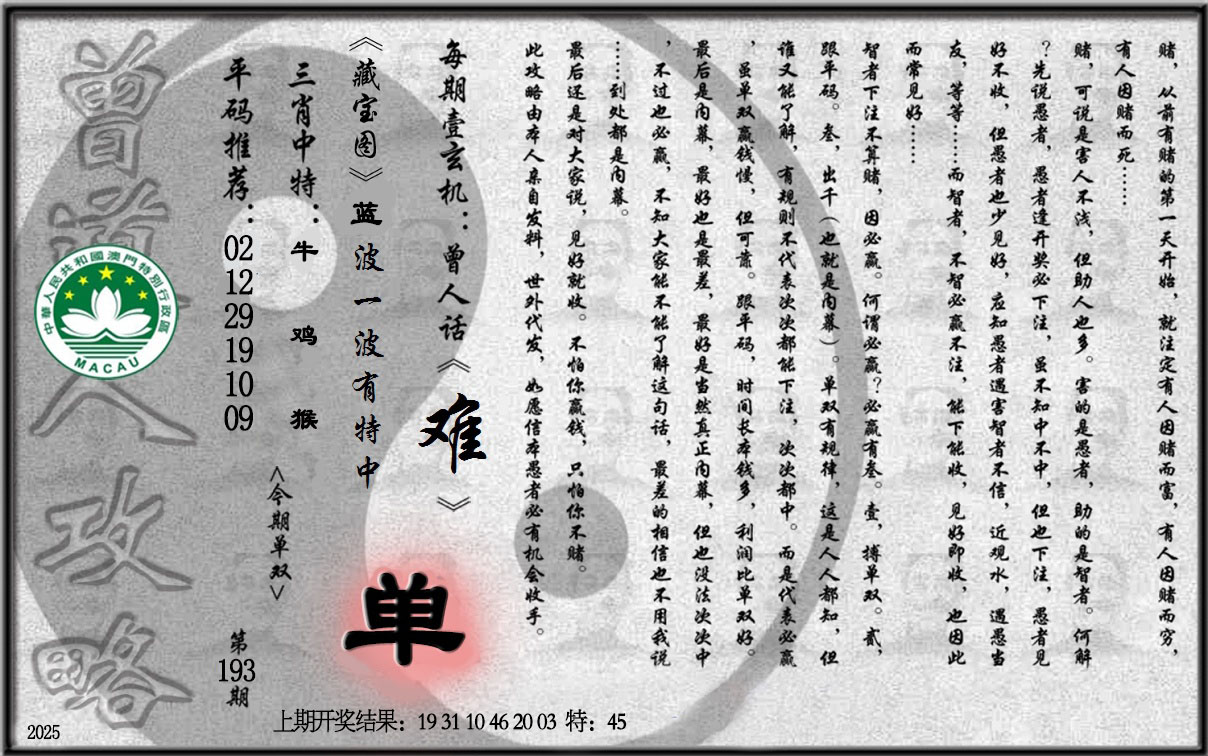 赌，从前有赌的第一天开始，就注定有人因赌而富，有人因赌而穷，
有人因赌而死……
赌，可说是害人不浅，但助人也多。害的是愚者，助的是智者。何解
？先说愚者，愚者逢开奖必下注，虽不知中不中，但也下注，愚者见
好不收，但愚者也少见好，应知愚者遇害智者不信，近观水，遇愚当
友，等等……而智者，不智必赢不注，能下能收，见好即收，也因此
而常见好……
智者下注不算赌，因必赢。何谓必赢？必赢有叁。壹，搏单双。贰，
跟平码。叁，出千（也就是内幕）。单双有规律，这是人人都知，但
谁又能了解，有规则不代表次次都能下注，次次都中。而是代表必赢
，虽单双赢钱慢，但可靠。跟平码，时间长本钱多，利润比单双好。
最后是内幕，最好也是最差，最好是当然真正内幕，但也没法次次中
，不过也必赢，不知大家能不能了解这句话，最差的相信也不用我说
……到处都是内幕。
最后还是对大家说，见好就收。不怕你赢钱，只怕你不赌。
此攻略由本人亲自发料，世外代发，如愿信本愚者必有机会收手。
每期壹玄机：曾人话《难》
《藏宝图》蓝波一波有特中
单
三肖中特：牛 鸡 猴
<今期单双>
平码推荐：02 12 29 19 10 09
第193期
曾道人攻略
中華人民共和國澳門特別行政區
MACAU
上期开奖结果：19 31 10 46 20 03 特：45
2025